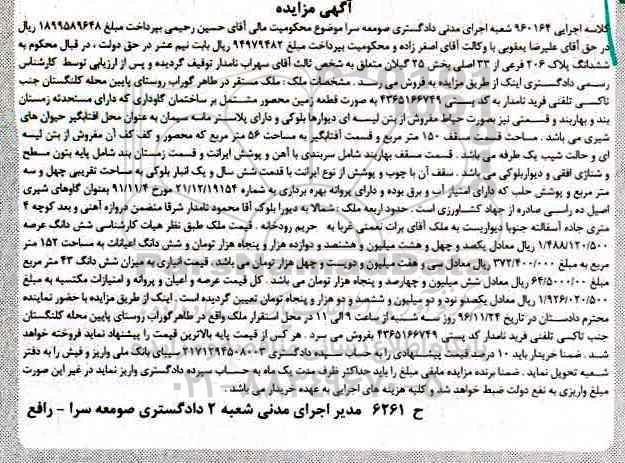 آگهی مزایده
کلاسه اجرایی ۹۶۰۱۶۴ شعبه اجرای مدنی دادگستری صومعه سرا موضوع محکومیت مالی آقای حسین رحیمی بپرداخت مبلغ ۱۸۹۹۵۸۹۶۴۸ ریال
در حق آقای علیرضا یعقوبی با وکالت آقای اصغر زاده و محکومیت بپرداخت مبلغ ۹۴۹۷۹۴۸۲ ریال بابت نیم عشر در حق دولت ، در قبال محکوم به
ششدانگ پلاک ۲۰۶ فرعی از ۳۳ اصلی بخش ۲۵ گیلان متعلق به شخص ثالث آقای سهراب نامدار توقیف گردیده و پس از ارزیابی توسط کارشناس
رسمی دادگستری اینک از طریق مزایده به فروش می رسد . مشخصات ملک : ملک مستقر در طاهر گوراب روستای پایین محله کلنگستان جنب
تاکسی تلفنی فرید نامدار به کد پستی ۴۳۶۵۱۶۶۷۴۹ به صورت قطعه زمین محصور مشتمل بر ساختمان گاوداری که دارای مستحدثه زمستان
بند و بهاربند و قسمتی نیز بصورت حیاط مفروش از بتن لیسه ای دیوارها بلوکی و دارای پلاستر ماسه سیمان به عنوان محل آفتابگیر حیوان های
شیری می باشد . مساحت قسمت مسقف ۱۵۰ متر مربع و قسمت آفتابگیر به مساحت ۵۶ متر مربع که محصور و کف کف آن مفروش از بتن لیسه
ای و حالت شیب یک طرفه می باشد . قسمت مسقف بهاربند شامل سربندی با آهن و پوشش ایرانت و قسمت زمستان بند شامل پایه بتون مسطح
و شناژی افقی و دیواربلوکی می باشد . سقف آن با چوب و پوشش از نوع ایرانت با قدمت شش سال و یک انبار بلوکی به مساحت تقریبی چهل و سه
متر مربع و پوشش حلب که دارای امتیاز آب و برق بوده و دارای پروانه بهره برداری به شماره ۲۱/۱۲/۱۹۱۵۴ مورخ ۹۱/۱۱/۴ بعنوان گاوهای شیری
اصیل ده راسی صادره از جهاد کشاورزی است . حدود اربعه ملک : شمالا به دیورا بلوک آقا محمود نامدار شرقا متضمن دروازه آهنی و بعد کوچه ۴
متری جاده آسفالته جنوبا دیواریست به ملک آقای برات نعمتی غربا به حریم رودخانه . قیمت ملک طبق نظر هیات کارشناسی شش دانگ عرصه
۱/۴۸۸/۱۲۰/۵۰۰ ریال معادل یکصد و چهل و هشت میلیون و هشتصد و دوازده هزار و پنجاه هزار تومان و شش دانگ اعیانات به مساحت ۱۵۲ متر
مربع به مبلغ ۳۷۲/۴۰۰/۰۰۰ ریال معادل سی و هفت میلیون و دویست و چهل هزار تومان می باشد. قیمت انباری به میزان شش دانگ ۴۳ متر مربع
۶۴/۵۰۰۰/۰۰ ریال معادل شش میلیون و چهارصد و پنجاه هزار تومان می باشد . کل قیمت عرصه و اعیان و پروانه و امتیازات مکتسبه به مبلغ
۱/۹۲۶/۰۲۰/۵۰۰ ریال معادل یکصدو نود و دو میلیون و ششصد و دو هزار و پنجاه تومان تعیین گردیده است . اینک از طریق مزایده با حضور نماینده
محترم دادستان در تاریخ ۹۶/۱۱/۲۴ روز سه شنبه از ساعت ۹ الی ۱۱ در محل استقرار ملک واقع در طاهرگوراب روستای پایین محله کلنگستان
جنب تاکسی تلفنی فرید نامدار کد پستی ۴۳۶۵۱۶۶۷۴۹ بفروش می رسد . هر کس از قیمت پایه بالاترین قیمت را پیشنهاد نماید فروخته خواهد
شد . ضمنا خریدار باید ۱۰ درصد قیمت پیشنهادی را به حساب سپرده دادگستری ۲۱۷۱۲۹۴۵۰۸۰۰۳ سیبای بانک ملی واریز و فیش را به دفتر
شعبه تحویل نماید . ضمنا برنده مزایده مابقی مبلغ را باید حداکثر ظرف مدت یک ماه به حساب سپرده دادگستری واریز نماید در غیر این صورت
مبلغ واریزی به نفع دولت ضبط خواهد شد . کلیه هزینه های اجرایی به عهده خریدار می باشد .
ح ۶۲۶۱ مدیر اجرای مدنی شعبه ۲ دادگستری صومعه سرا - رافع